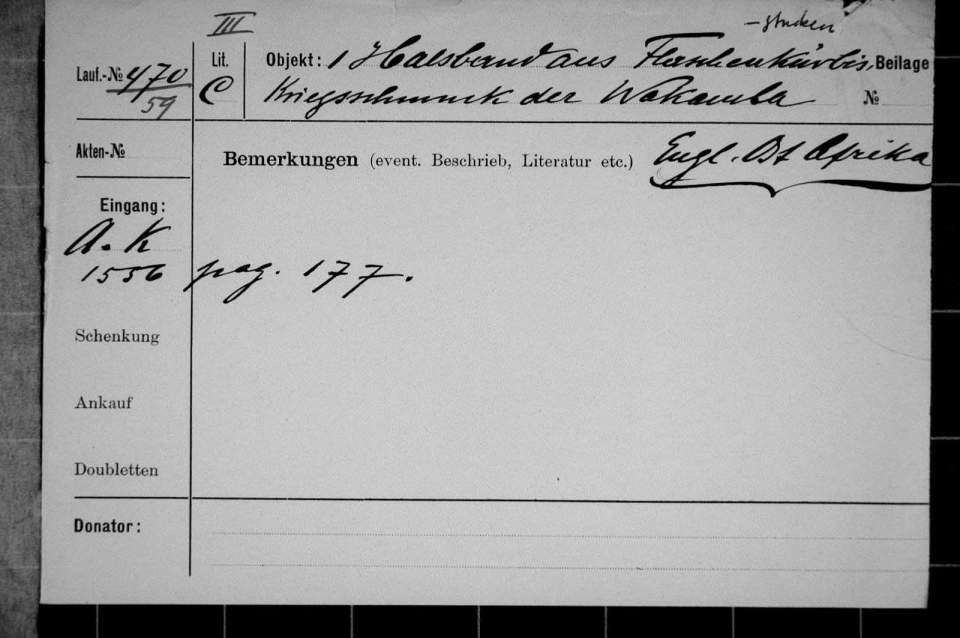 III
-stücken
Lauf.-№ 470 Lit. Objekt: 1 Halsband aus Flaschenkürbis, Beilage
59 C Kriegsschmuck der Wakamba №
Akten-№ Bemerkungen (event. Beschrieb, Literatur etc.) Engl. Ost Afrika
Eingang:
A. K
1556 pag. 177.
Schenkung
Ankauf
Doubletten
Donator: